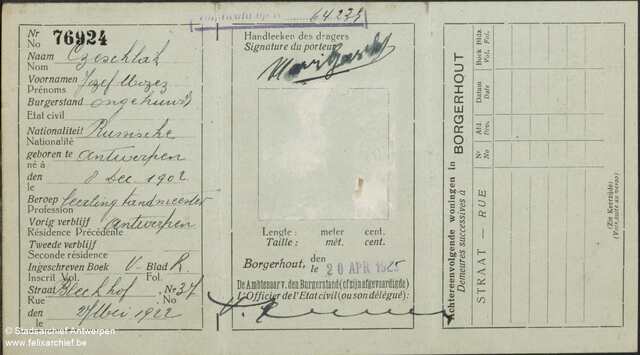 Nr
No 76924
Naam Czeschlak
Nom
Voornamen Jozef Mozes
Prénoms
Burgerstand ongehuwd
Etat civil
Nationaliteit Russische
Nationalité
geboren te Antwerpen
né à
den 8 Dec 1902
le
Beroep leerling tandmeester
Profession
Vorig verblijf Antwerpen
Résidence Précédente
Tweede verblijf
Seconde résidence
Ingeschreven Boek V- Blad R.
Inscrit Vol. Fol.
Straat Bleekhof Nr 37
Rue No
den 24 Mei 1922
le
64.235
Handteeken des dragers
Signature du porteur
Lengte : meter cent.
Taille : mèt. cent.
Borgerhout, den
le 20 APR 1925
De Ambtenaar v. den Burgerstand (of zijn afgevaardigde)
L'Officier de l'Etat civil (ou son délégué) :
Achtereenvolgende woningen in BORGERHOUT
Demeures successives à
STRAAT — RUE
Nr
No
Afd.
Div.
Datum
Date
Boek Bldz.
Vol. Fol.
(Zie Keerzijde)
(Voir suite au verso)
© Stadsarchief Antwerpen
www.felixarchief.be